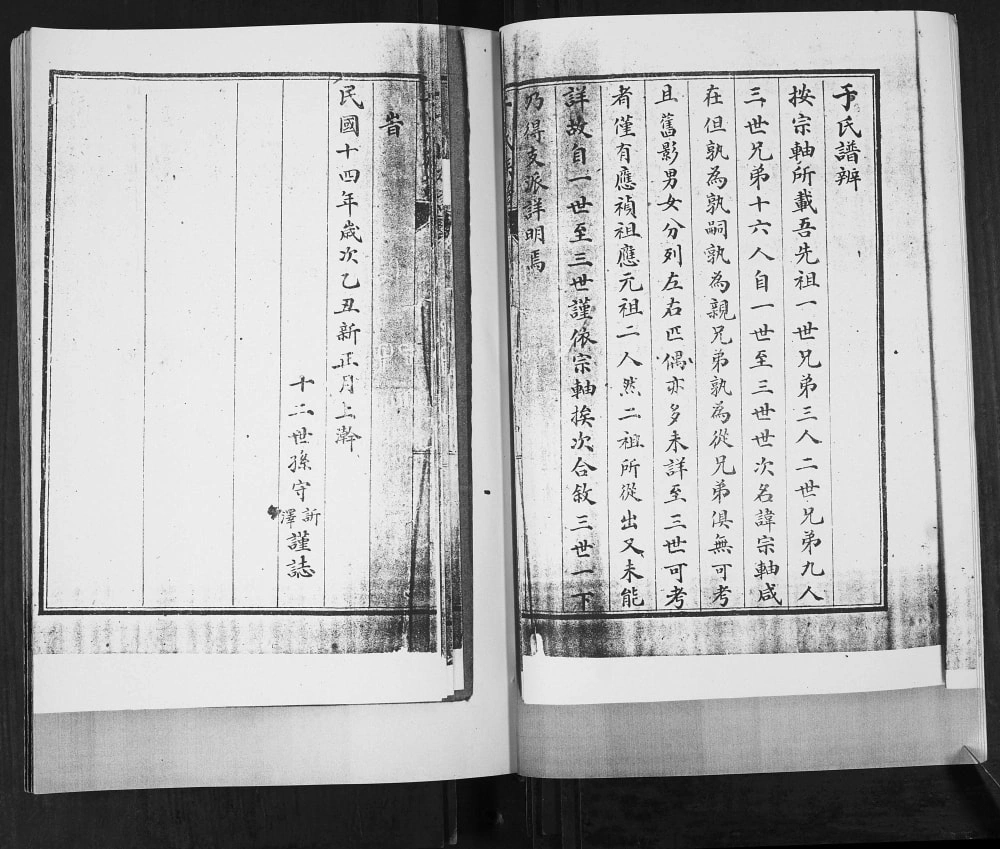 于氏譜辨
按宗軸所載吾先祖一世兄弟三人二世兄弟九人
三世兄弟十六人自一世至三世世次名諱宗軸咸
在但孰為孰嗣孰為親兄弟孰為從兄弟俱無可考
且舊影男女分列左右匹偶亦多未詳至三世可考
者僅有應禎祖應元祖二人然二祖所從出又未能
詳故自一世至三世謹依宗軸挨次合敘三世一下
乃得支派詳明焉
旹
民國十四年歲次乙丑新正月上澣
十二世孫守新澤謹誌